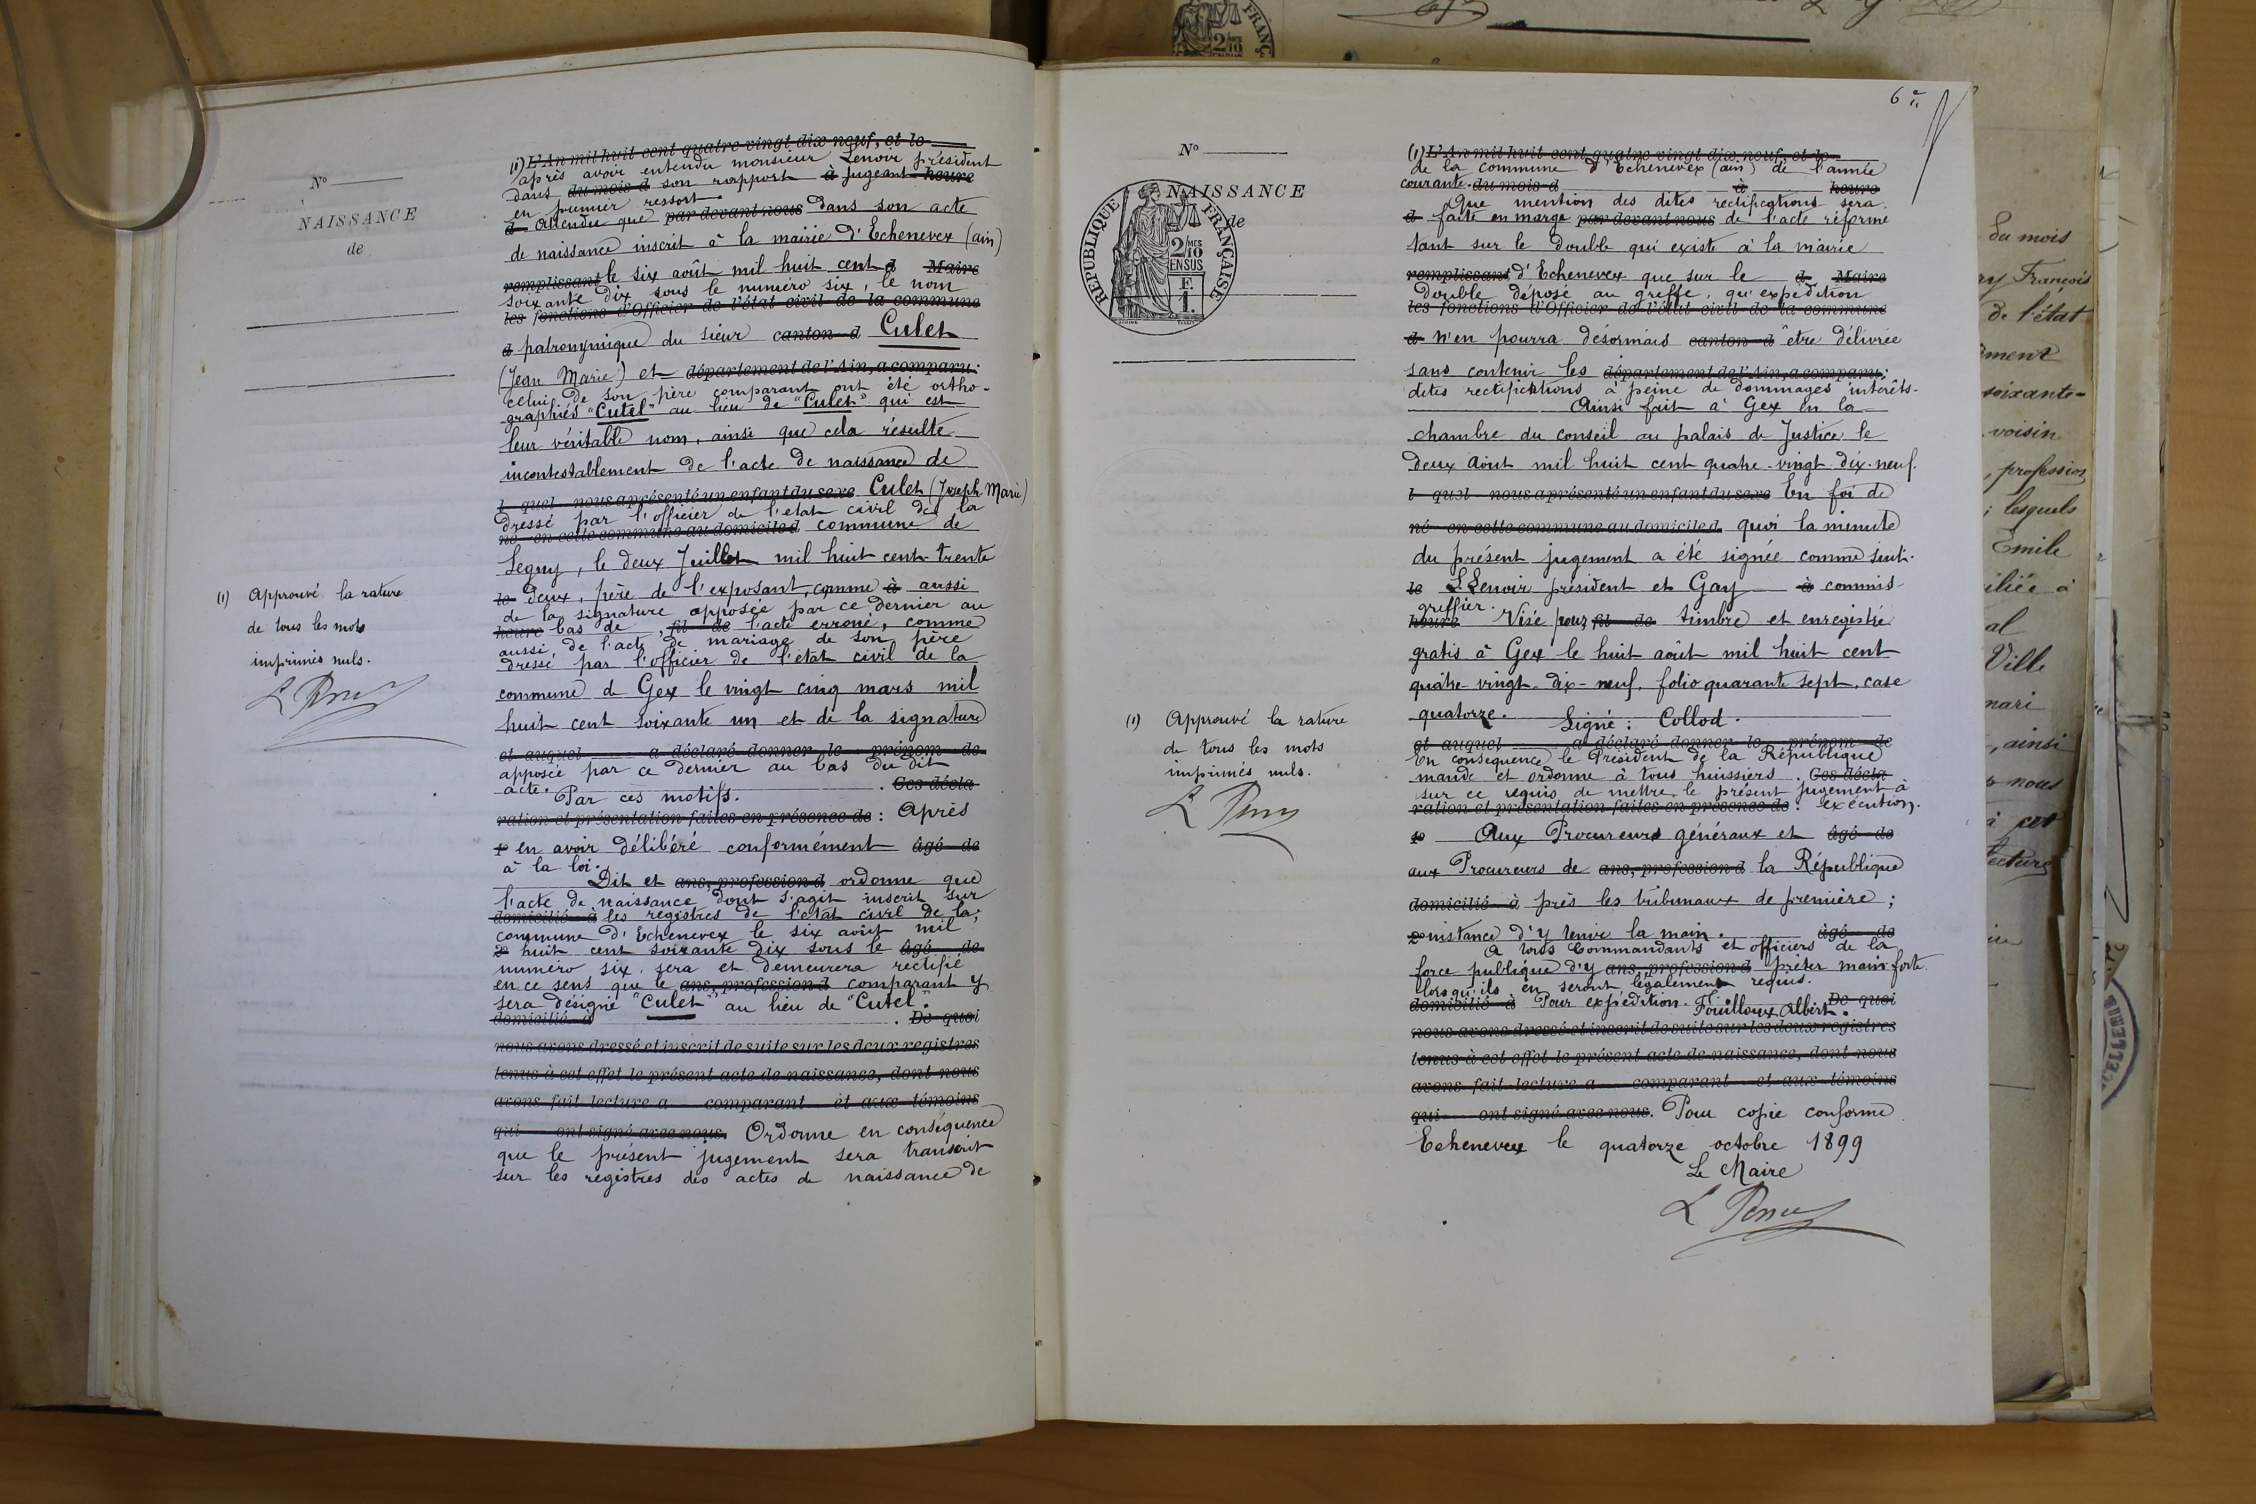 N°
NAISSANCE
de
(1) L'An mil huit cent quatre-vingt-dix-neuf, et le
après avoir entendu monsieur Lenoir président
dans du mois d son rapport à jugeant heure
en premier ressort.
d Attendu que par devant nous dans son acte
de naissance inscrit à la mairie d'Echenevex (ain)
remplissant le six août mil huit cent d Maire
soixante dix sous le numéro six, le nom
les fonctions d'Officier de l'état civil de la commune
d patronymique du sieur canton d Culet
(Jean Marie) et département de l'Ain, a comparu:
celui de son père comparant ont été ortho-
graphiés "Cutel" au lieu de "Culet" qui est
leur véritable nom, ainsi que cela résulte
incontestablement de l'acte de naissance de
l quel nous a présenté un enfant du sexe Culet (Joseph Marie)
dressé par l'officier de l'état civil de la
né en cette commune au domicile d commune de
Segny, le deux Juillet mil huit cent trente
le deux, père de l'exposant, comme à aussi
de la signature apposée par ce dernier au
heure bas de , fil de l'acte erroné, comme
aussi de l'acte de mariage de son père
dressé par l'officier de l'état civil de la
commune de Gex le vingt cinq mars mil
huit cent soixante un et de la signature
et auquel a déclaré donner le prénom de
apposée par ce dernier au bas du dit
acte. . Ces décla
Par ces motifs.
ration et présentation faites en présence de : Après
1° en avoir délibéré conformément âgé de
à la loi.
Dit et ans, profession d ordonne que
l'acte de naissance dont s'agit inscrit sur
domicilié à les registres de l'état civil de la;
commune d'Echenevex le six août mil
2° huit cent soixante dix sous le âgé de
numéro six, sera et demeurera rectifié
en ce sens que le ans, profession d comparant y
sera désigné "Culet" au lieu de "Cutel".
domicilié à . De quoi
nous avons dressé et inscrit de suite sur les deux registres
tenus à cet effet le présent acte de naissance, dont nous
avons fait lecture a comparant et aux témoins
qui ont signé avec nous. Ordonne en conséquence
que le présent jugement sera transcrit
sur les registres des actes de naissance de
(1) Approuvé la rature
de tous les mots
imprimés nuls.
6e
N°
NAISSANCE
de
RÉPUBLIQUE FRANÇAISE
2/10 MES
EN SUS
F.
1.
(1) L'An mil huit cent quatre-vingt-dix-neuf, et le
de la commune d'Echenevex (ain) de l'année
courante. du mois d à heure
Que mention des dites rectifications sera
d faite en marge par devant nous de l'acte réformé
tant sur le double qui existe à la mairie
remplissant d'Echenevex que sur le d Maire
double déposé au greffe, qu'expédition
les fonctions d'Officier de l'état civil de la commune
d n'en pourra désormais canton d être délivrée
sans contenir les département de l'Ain, a comparu:
dites rectifications à peine de dommages intérêts.
Ainsi fait à Gex en la
chambre du conseil au palais de Justice le
deux août mil huit cent quatre-vingt-dix-neuf.
l quel nous a présenté un enfant du sexe En foi de
né en cette commune au domicile d quoi la minute
du présent jugement a été signée comme suit.
le L. Lenoir président et Gay à commis
greffier.
heure Visé pour fil de timbre et enregistré
gratis à Gex le huit août mil huit cent
quatre-vingt-dix-neuf, folio quarante sept, case
quatorze. Signé: Collod.
et auquel a déclaré donner le prénom de
En conséquence le Président de la République
mande et ordonne à tous huissiers . Ces décla
sur ce requis de mettre le présent jugement à
ration et présentation faites en présence de : exécution.
1° Aux Procureurs généraux et âgé de
aux Procureurs de ans, profession d la République
domicilié à près les tribunaux de première;
2° instance d'y tenir la main. âgé de
A tous Commandants et officiers de la
force publique d'y ans, profession d prêter main forte
lorsqu'ils en seront légalement requis.
domicilié à Pour expédition. Fouilloux Albert. De quoi
nous avons dressé et inscrit de suite sur les deux registres
tenus à cet effet le présent acte de naissance, dont nous
avons fait lecture a comparant et aux témoins
qui ont signé avec nous. Pour copie conforme
Echenevex le quatorze octobre 1899
Le Maire
(1) Approuvé la rature
de tous les mots
imprimés nuls.
du mois
François
de l'état
soixante-
voisin
, profession
; lesquels
Emile
à
al
Ville
mari
, ainsi
nous
à cet
lecture